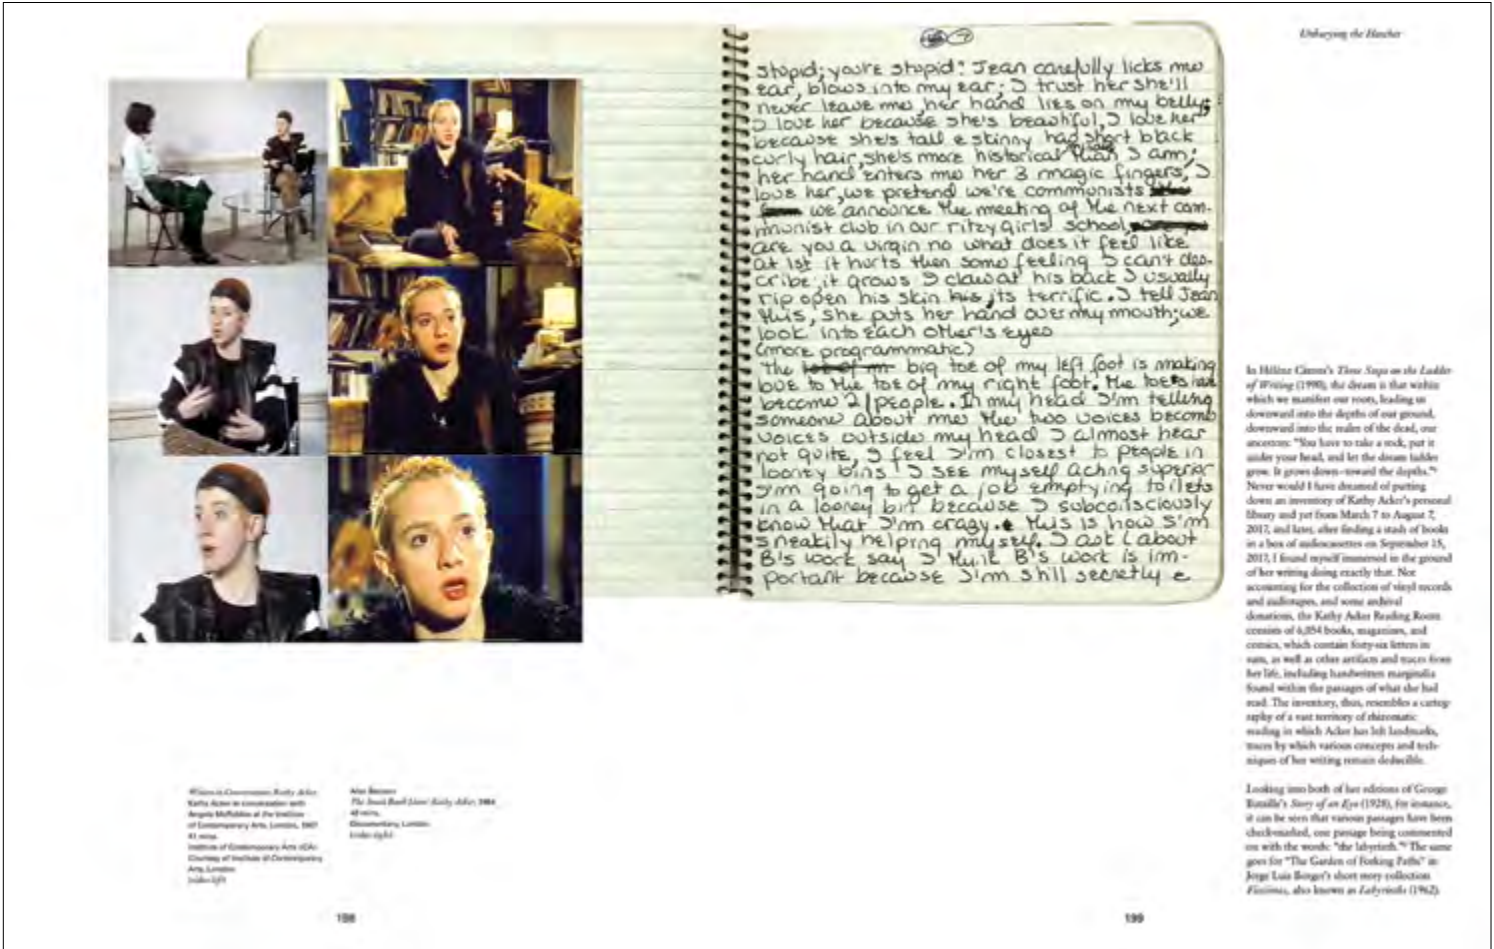 Unburying the Hatchet
stupid; you're stupid! Jean carefully licks my
ear, blows into my ear; I trust her she'll
never leave me, her hand lies on my belly;
I love her because she's beautiful, I love her
because she's tall & skinny had short black
curly hair, she's more historical than I am;
her hand enters me her 3 magic fingers, I
love her, we pretend we're communists
we announce the meeting of the next com-
munist club in our ritzy girls' school,
are you a virgin no what does it feel like
at 1st it hurts then some feeling I can't des-
cribe, it grows I claw at his back I usually
rip open his skin his, its terrific. I tell Jean
this, she puts her hand over my mouth; we
look into each other's eyes
(more programmatic)
the big toe of my left foot is making
love to the toe of my right foot. The toes
become 2 people. In my head I'm telling
someone about me the two voices become
voices outside my head I almost hear
not quite, I feel I'm closest to people in
looney bins I see myself acting superior
I'm going to get a job emptying toilets
in a looney bin because I subconsciously
know that I'm crazy. this is how I'm
sneakily helping myself. I ask L about
B's work say I think B's work is im-
portant because I'm still secretly e
In Hélène Cixous's Three Steps on the Ladder
of Writing (1990), the dream is that within
which we manifest our roots, leading us
downward into the depths of our ground,
downward into the realm of the dead, our
ancestors: "You have to take a rock, put it
under your head, and let the dream ladder
grow. It grows down—toward the depths."
Never would I have dreamed of putting
down an inventory of Kathy Acker's personal
library and yet from March 7 to August 7,
2017, and later, after finding a stash of books
in a box of audiocassettes on September 15,
2017, I found myself immersed in the ground
of her writing doing exactly that. Not
accounting for the collection of vinyl records
and audiotapes, and some archival
donations, the Kathy Acker Reading Room
consists of 6,054 books, magazines, and
comics, which contain forty-six letters in
sum, as well as other artifacts and traces from
her life, including handwritten marginalia
found within the passages of what she had
read. The inventory, thus, resembles a cartog-
raphy of a vast territory of rhizomatic
reading in which Acker has left landmarks,
traces by which various concepts and tech-
niques of her writing remain deducible.
Looking into both of her editions of George
Bataille's Story of an Eye (1928), for instance,
it can be seen that various passages have been
check-marked, one passage being commented
on with the words: "the labyrinth." The same
goes for "The Garden of Forking Paths" in
Jorge Luis Borges's short story collection
Ficciones, also known as Labyrinths (1962).
Writers in Conversation: Kathy Acker
Kathy Acker in conversation with
Angela McRobbie at the Institute
of Contemporary Arts, London, 1987
Institute of Contemporary Arts (ICA)
Courtesy of Institute of Contemporary
Arts, London
(video left)
Alan Benson
The South Bank Show: Kathy Acker, 1984
Documentary, London
(video right)
198
199